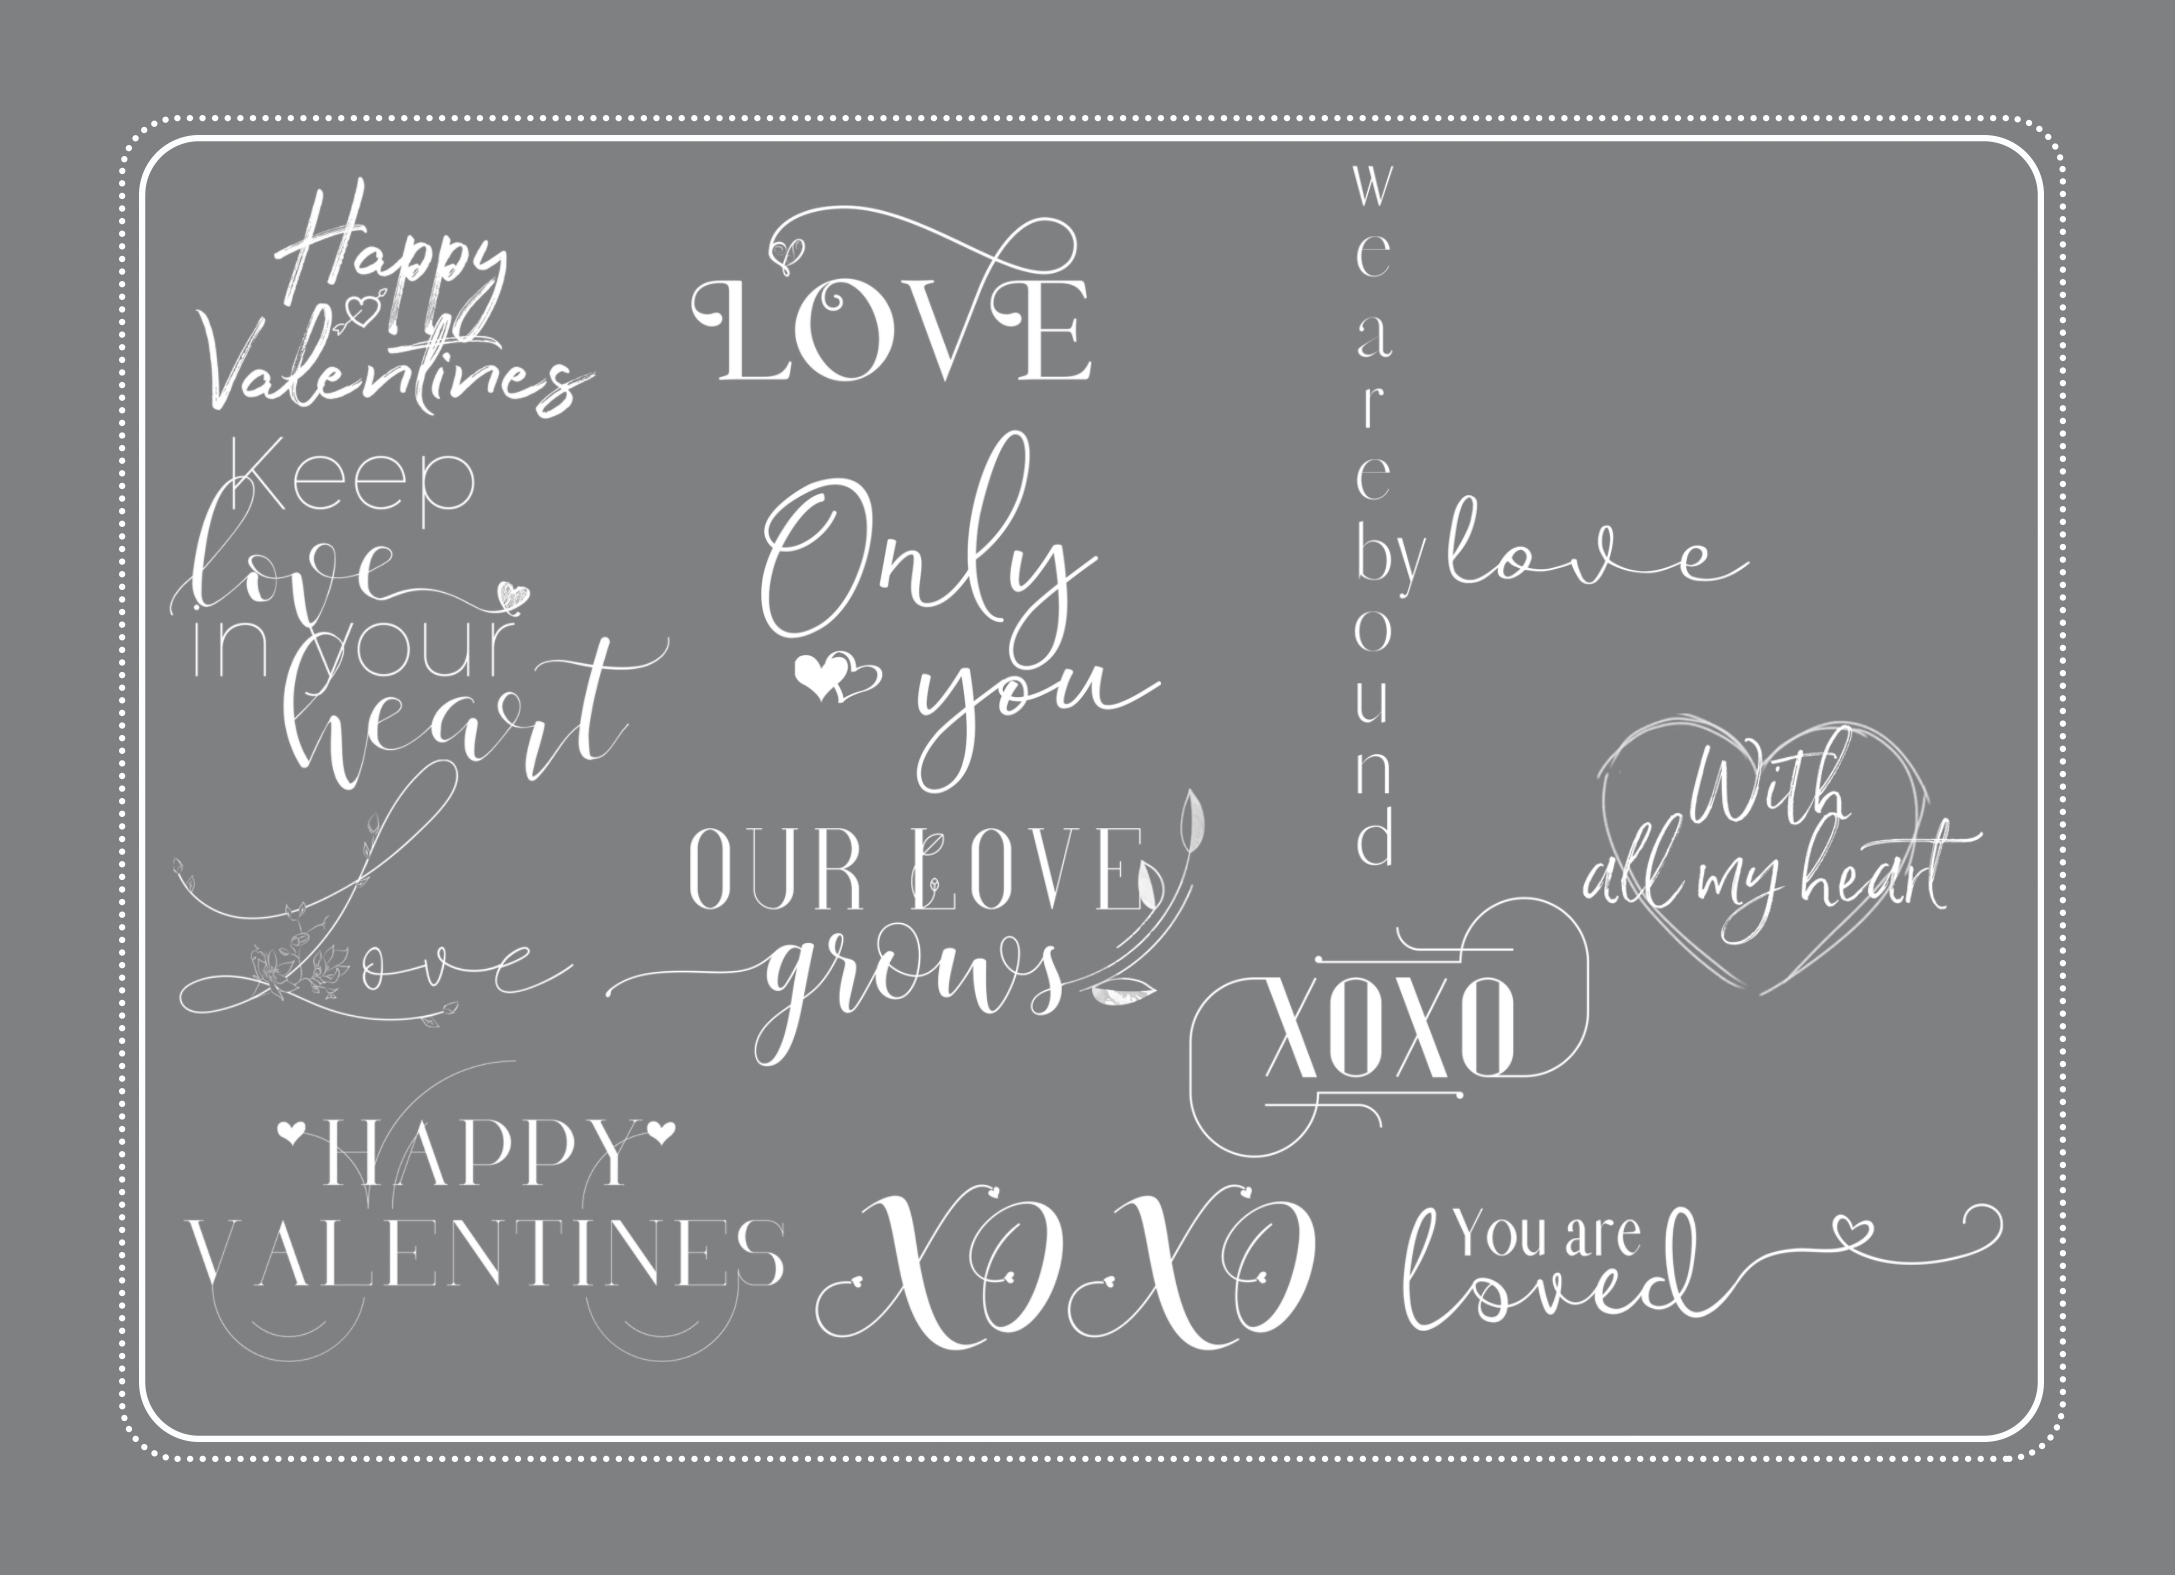 Happy
Valentines
LOVE
Keep
love
in your
heart
Only
you
w
e
a
r
e
by love
o
u
n
d
Love
OUR LOVE
grows
With
all my heart
XOXO
HAPPY
VALENTINES
XOXO
You are
loved